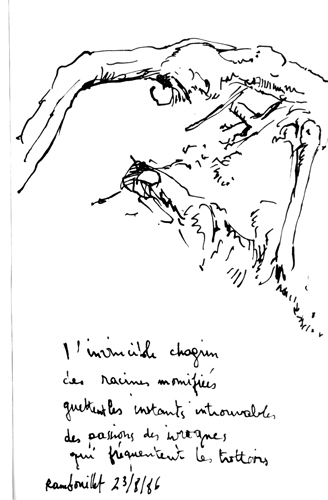 l'invincible chagrin
des racines momifiées
guettent les instants introuvables
des passions des ivrognes
qui fréquentent les trottoirs
Rambouillet 23/8/86